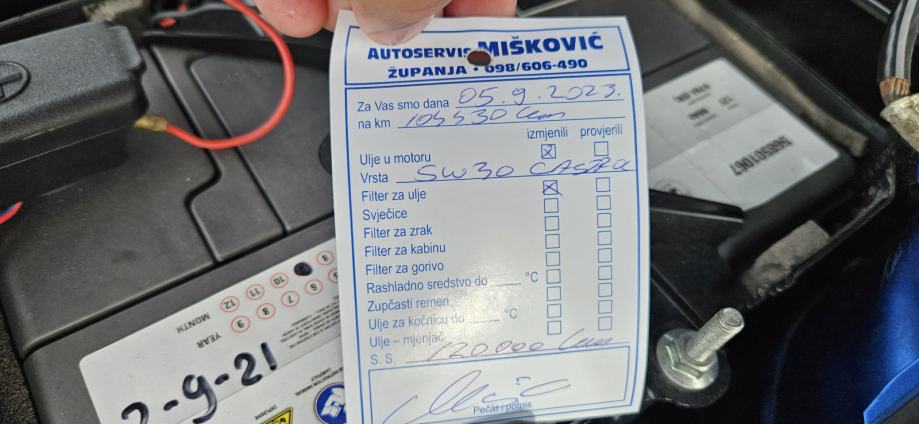 AUTOSERVIS MIŠKOVIĆ
ŽUPANJA • 098/606-490
Za Vas smo dana 05.9.2023.
na km
izmjenili provjerili
Ulje u motoru
Vrsta 5W30 CASTROL
Filter za ulje
Svječice
Filter za zrak
Filter za kabinu
Filter za gorivo
Rashladno sredstvo do °C
Zupčasti remen
Ulje za kočnicu do °C
Ulje – mjenjač
S. S. 120 000 km
Pečat i potpis
568501067
MONTH
YEAR
12 11 10
9 8 7 6
2-9-21